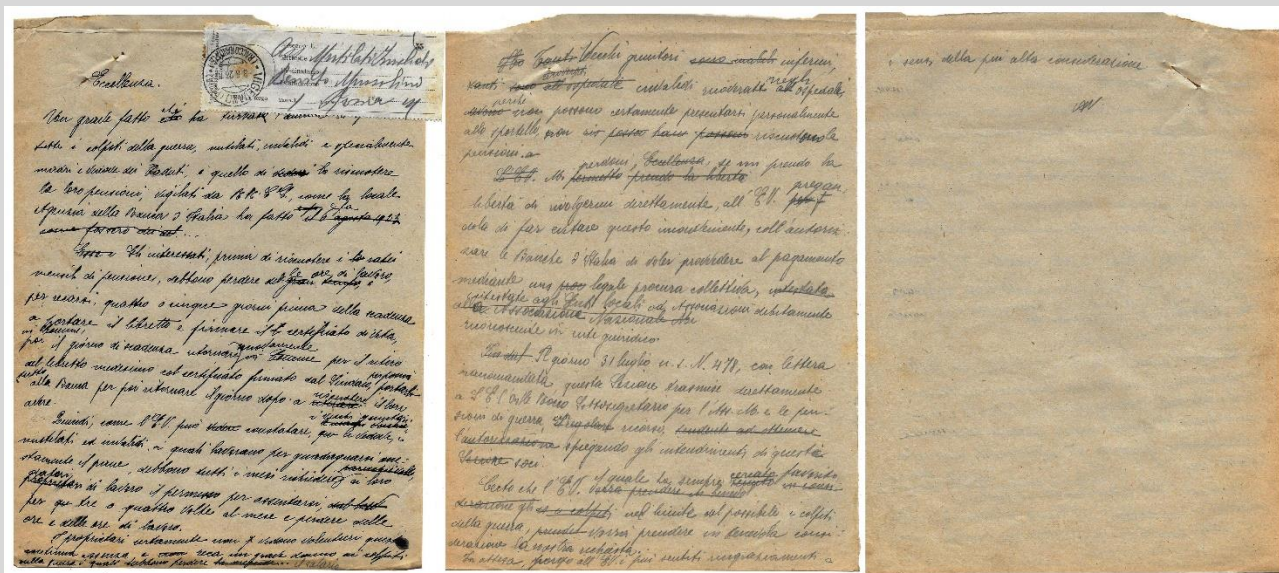 Eccellenza.
Ass Mutilati Invalidi
Benito Mussolini
Roma
Un grave fatto che ha
colpiti dalla guerra, mutilati, invalidi e specialmente
e vedove dei Caduti, è quello di riscuotere
le loro pensioni, vigilati da RR CC, come la locale
Agenzia della Banca d'Italia ha fatto il 6 agosto 1923
come fossero dei
Essi Gli interessati, prima di riscuotere i ratei
mensili di pensione, debbono perdere del gran tempo, e
ore di lavoro,
per recarsi, quattro o cinque giorni prima della scadenza
a portare il libretto e firmare il certificato di vita,
poi il giorno di scadenza ritornare in Comune per il ritiro
del libretto medesimo col certificato firmato dal Sindaco, portarsi
alla Banca per poi ritornare il giorno dopo a riscuotere il loro
avere.
Quindi, come l'E.V. può constatare,
mutilati ed invalidi, i quali lavorano per guadagnarsi
stamente il pane, debbono tutti i mesi richiedere ai loro
proprietari di lavoro il permesso per assentarsi,
per tre o quattro volte al mese e perdere delle
ore e delle ore di lavoro.
I proprietari certamente non vedono volentieri questa
continua assenza, e reca un grave danno ai colpiti
dalla guerra i quali debbono perdere
Vecchi genitori infermi,
tanti invalidi ricoverati negli ospedali,
non possono certamente presentarsi personalmente
allo sportello, non
pensioni.
perdoni, Eccellenza, se mi prendo la
L'E.V. Mi permetto prendo la libertà
libertà di rivolgermi direttamente, all'E.V. pregan
dola di far evitare questo inconveniente, coll'autoriz
zare le Banche d'Italia di voler provvedere al pagamento
mediante una legale procura collettiva, intestata
intestate agli Enti locali od Associazioni debitamente
Associazione Nazionale
riconosciute in ente giuridico.
Il giorno 31 luglio u. s. N. 478, con lettera
raccomandata questa Sezione trasmise direttamente
a S.E. De Bono Sottosegretario per l'Ass. M. e le pen
sioni di guerra, ricorso, tendente ad ottenere
l'autorizzazione spiegando gli intendimenti di questi
soci
Certo che l'E.V. il quale ha sempre cercato favorire
nel limite del possibile i colpiti
della guerra, vorrà prendere in benevola consi
derazione la nostra richiesta.
In attesa, porgo all'E.V. i più sentiti ringraziamenti e
i sensi della più alta considerazione